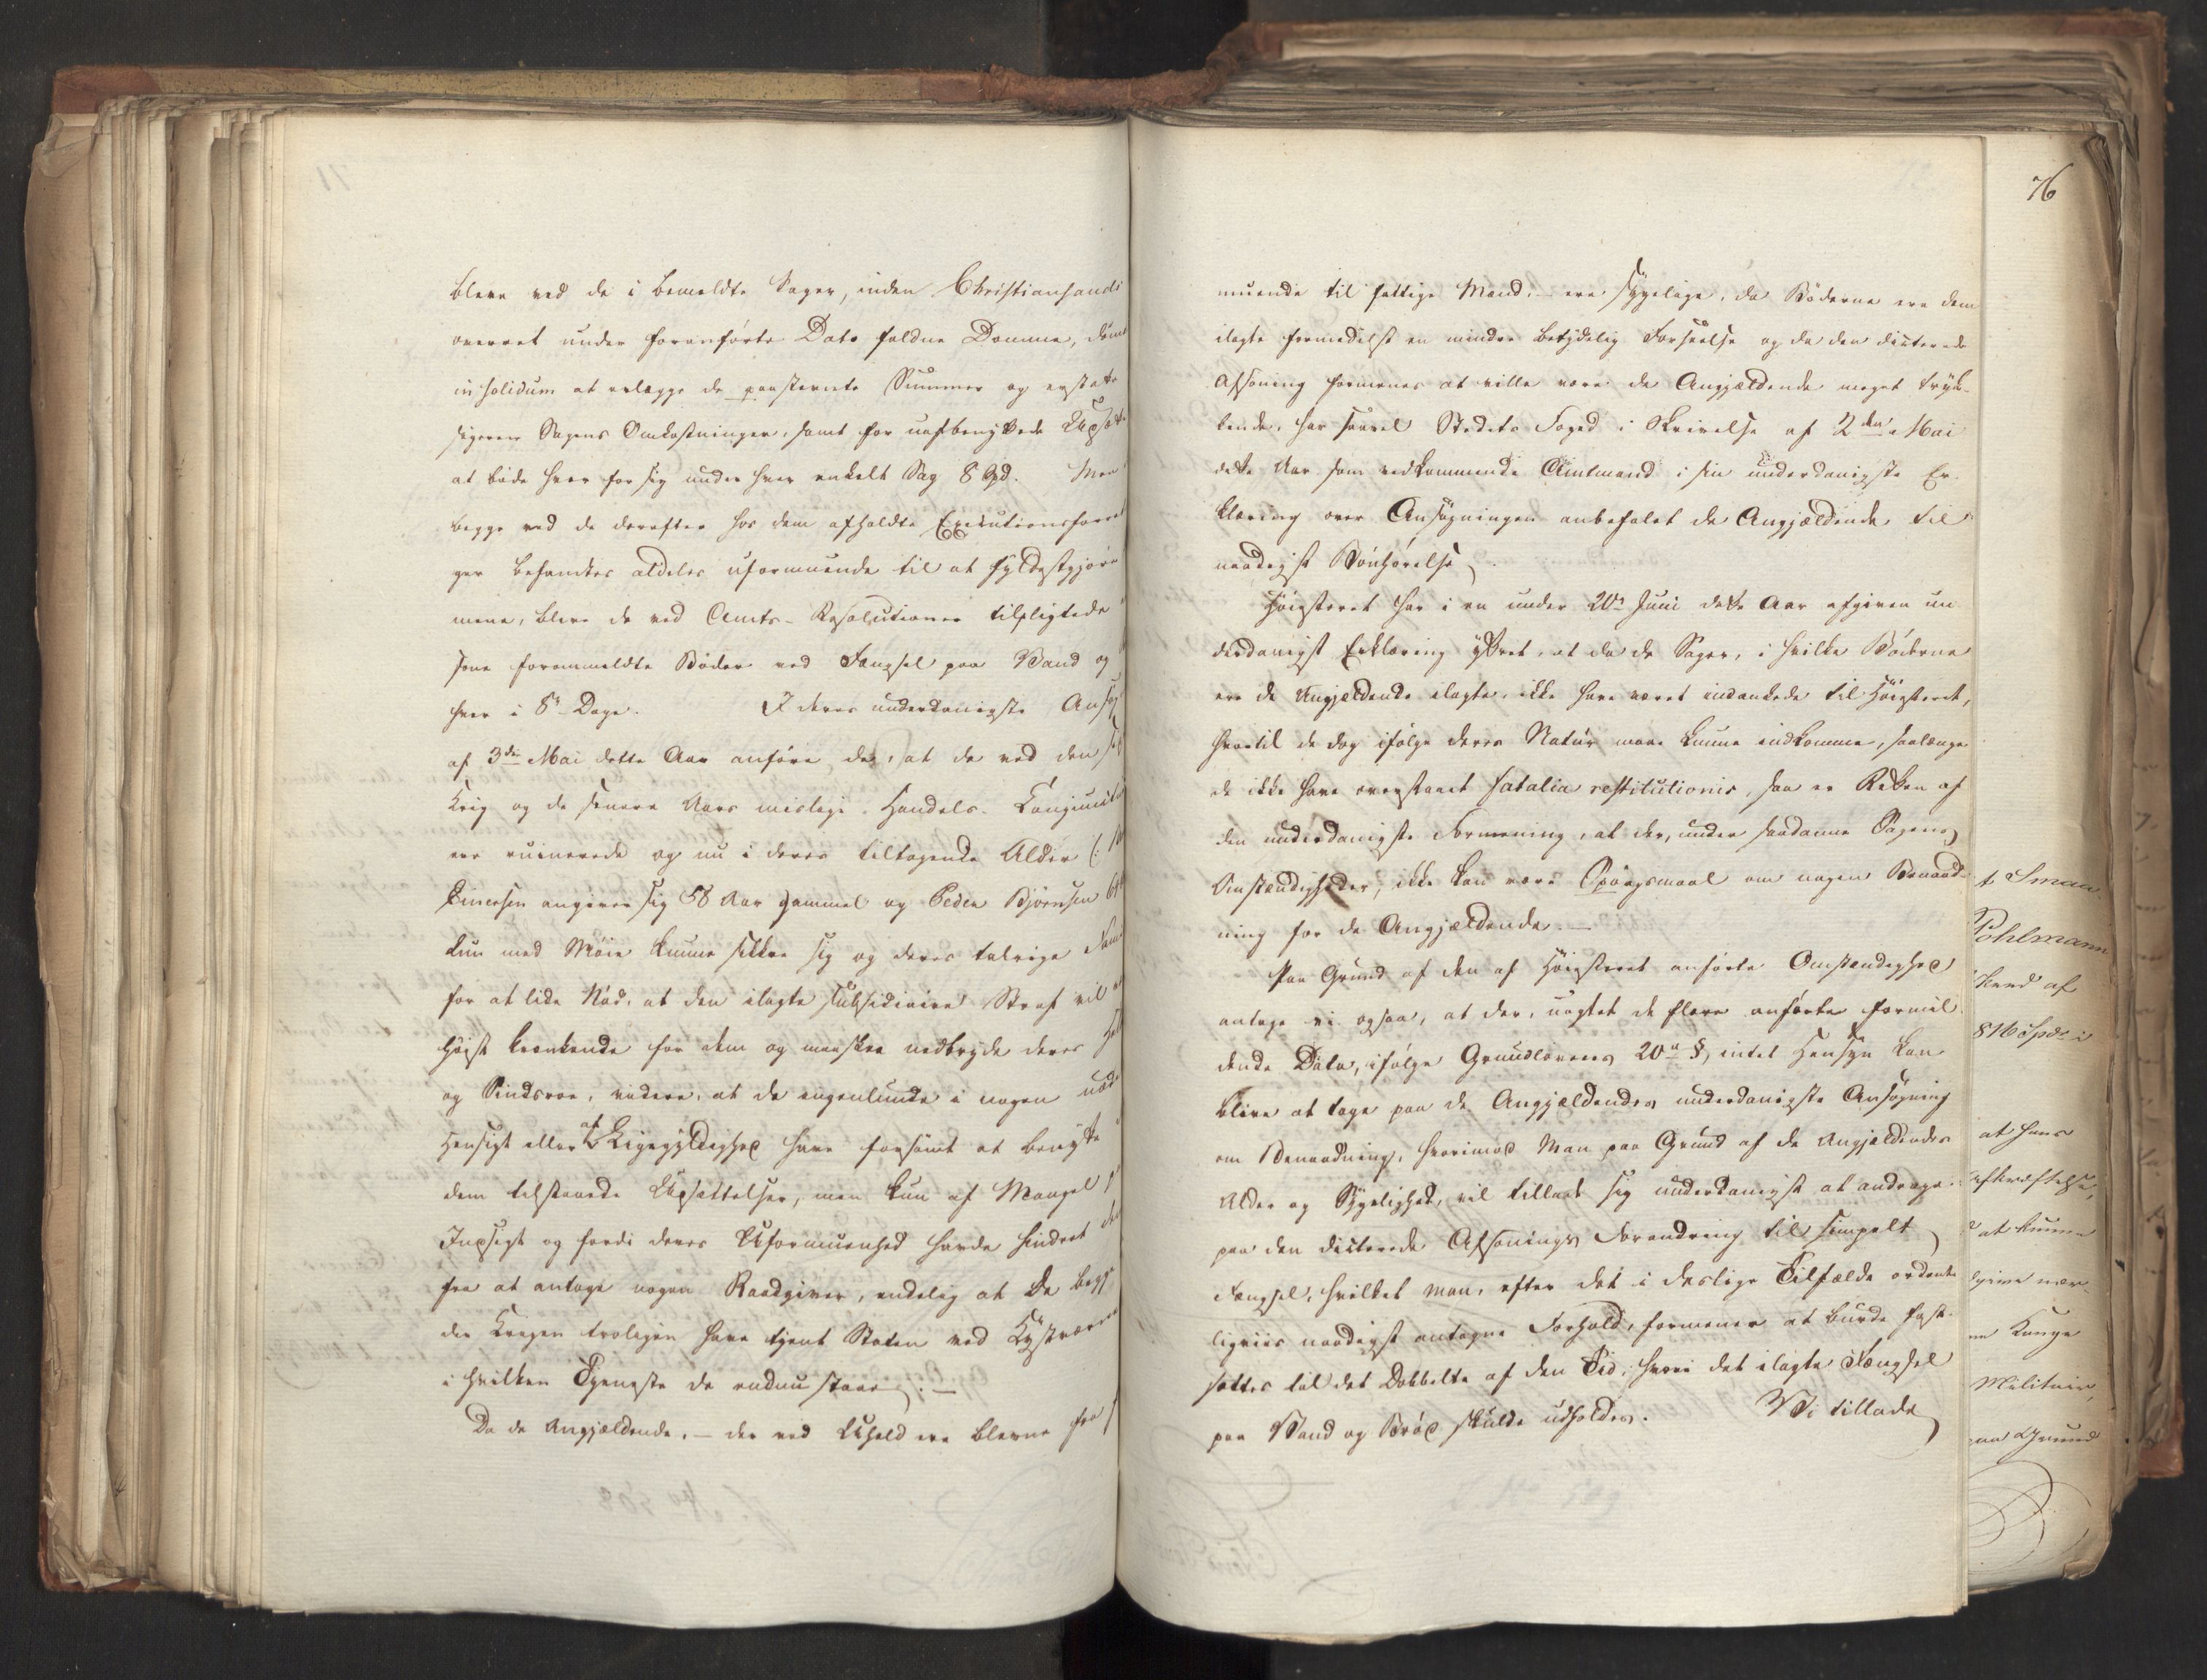 bleve ved de i bemeldte Sager, inden Christiansands
overret under foranførte Dato faldne Domme, dömt
in solidum at erlægge de paastevnte Summer og erstatte
Sigeren Sagens Omkostninger, samt for uafbenyttede Opsæt
at bøde hver for sig under hver enkelt Sag 8 Spd. Men
begge ved de derefter hos dem afholdte Executionsforret
ger befandtes aldeles uformuende til at fyldestgjøre
mene, bleve de ved Amts-Resolutioner tilpligtede
sone forommeldte Bøder ved Fængsel paa Vand og
hver i 8te Dage. I deres underdanigste Ansøg
af 3die Mai dette Aar anføre de, at de ved den
Krig og de senere Aars mislige Handels-Conjunctu
ere ruinerede og nu i deres tiltagende Alder (:
Einersen angiver sig 58 Aar gammel og Peder Bjørnsen 64
kun med Møie kunne sikkre sig og deres talrige Fam
for at lide Nød, at den ilagte subsidiaire Straf vil
høist krænkende for dem og maaskee nedbryde deres Hel
og Sindsroe, videre, at de ingenlunde i nogen
Hensigt eller af Ligegyldighed have forsømt at benytte
dem tilstaaede Opsættelser, men kun af Mangel
Indsigt og fordi deres Uformuenhed havde hindret dem
fra at antage nogen Raadgiver, endelig at De begge
der Krigen troligen have tjent Staten ved Kystværnet
i hvilken Tjeneste de endnu staae. —
Da de Angjældende, — der ved Uheld ere blevne fra
76
muende til fattige Mænd, — ere sygelige, da Bøderne ere dem
ilagte formedelst en mindre betydelig Forseelse og da den dicterede
Afsoning formenes at ville være de Angjældende meget tryk-
kende, har saavel Stedets Foged i Skrivelse af 2den Mai
dette Aar som vedkommende Amtmand i sin underdanigste Er-
klæring over Ansøgningen anbefalet de Angjældende til
naadigst Bønhørelse.
Høiesteret har i en under 20de Juni dette Aar afgiven un-
derdanigst Erklæring yttret, at da de Sager, i hvilke Bøderne
ere de Angjældende ilagte, ikke have været indankede til Høiesteret,
hvortil de dog ifølge deres Natur maae kunne indkomme, saalænge
de ikke have overstaaet fatalia restitutionis, saa er Retten af
den underdanigste Formening, at der, under saadanne Sagens
Omstændigheder, ikke kan være Spørgsmaal om nogen Benaad-
ning for de Angjældende. —
Paa Grund af den af Høiesteret anførte Omstændighed
antage vi ogsaa, at der, uagtet de flere anførte formil-
dende Data, ifølge Grundlovens 20de §, intet Hensyn kan
blive at tage paa de Angjældendes underdanigste Ansøgning
om Benaadning, hvorimod Man paa Grund af de Angjældendes
Alder og Sygelighed, vil tilladt sig underdanigst at andrage
paa den dicterede Afsonings Forandring til simpelt
Fængsel, hvilket man, efter det i deslige Tilfælde ordent-
ligviis naadigst antagne Forhold, formener at burde fast-
sættes til det Dobbelte af den Tid, hvori det ilagte Fængsel
paa Vand og Brød skulde udholdes. Vi tillade
t Smaa
Pohlmann
Skred af
816 Spd i
at hans
afkræftelse,
at kunne
give nær
Konge
Militair
paa Grund